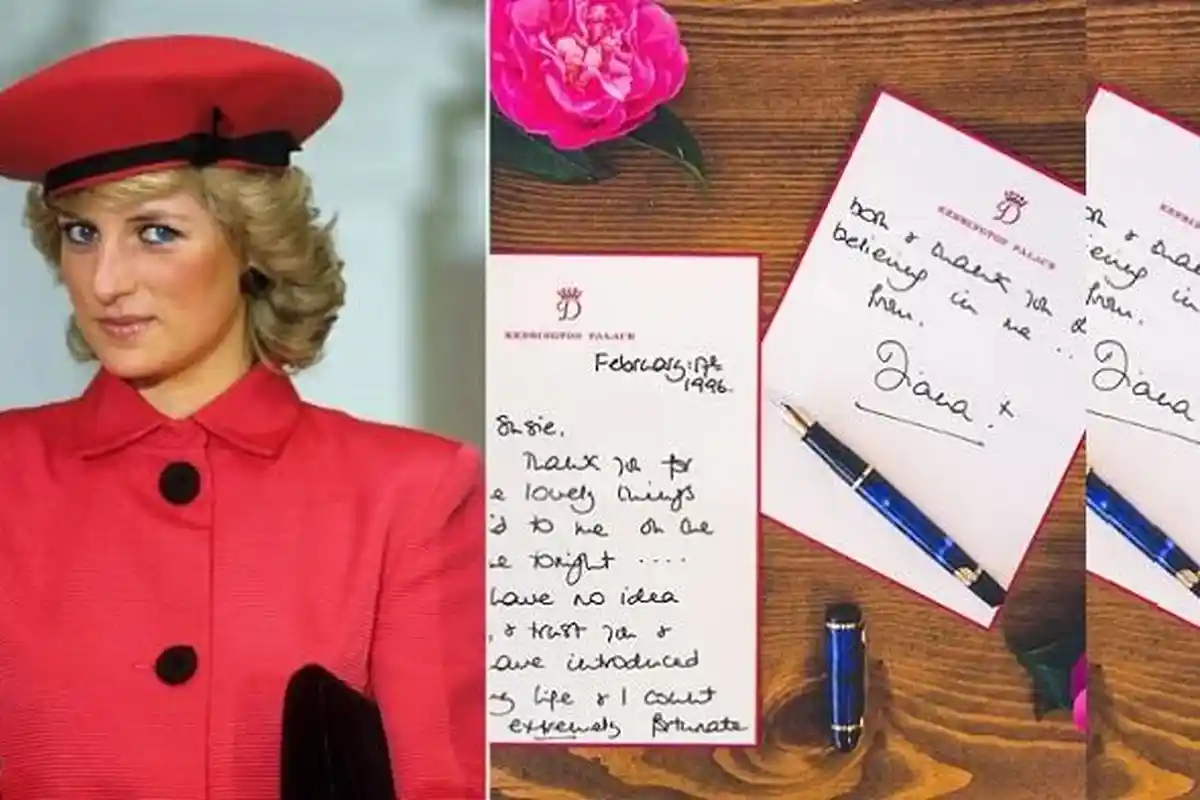 D
KENSINGTON PALACE
February:17th
1996.
Susie,
Thank you for
e lovely things
d to me on the
e tonight ....
have no idea
, & trust you &
ave introduced
life & I count
extremely fortunate
D
KENSINGTON PALACE
& thank you
believing in me ..
from.
Diana x
KENSING
& than
eving in
from.
Diana